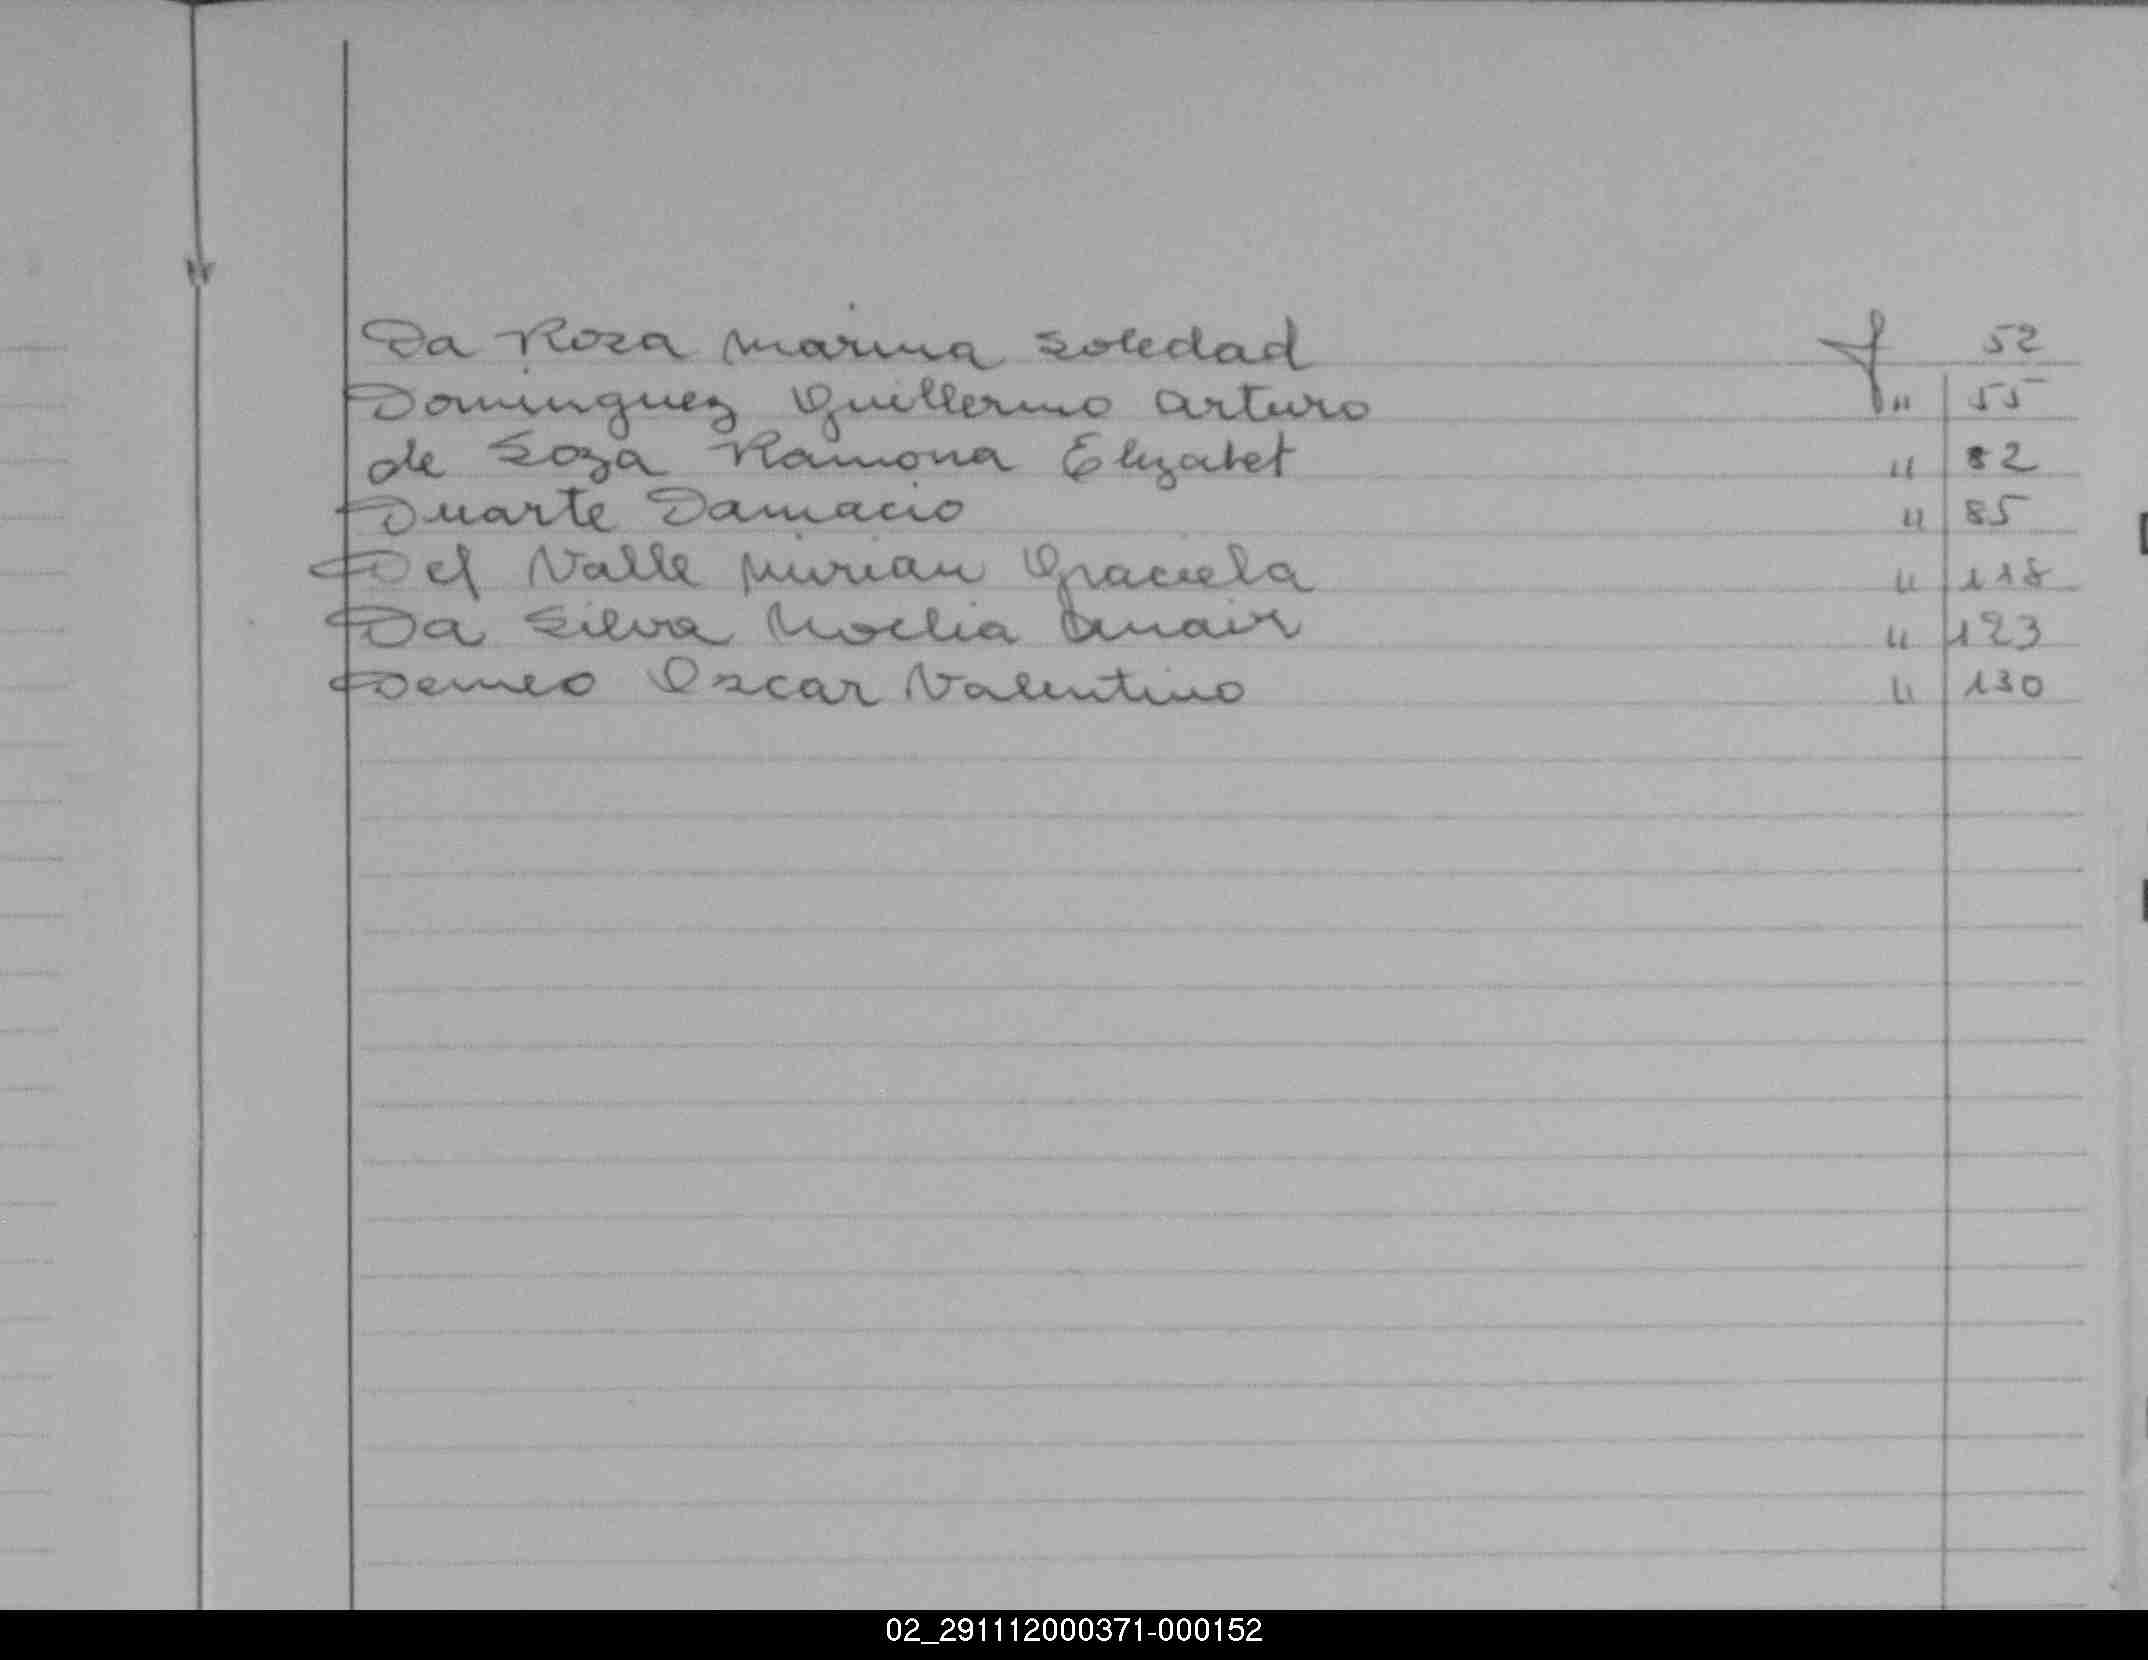 Da Rosa Marina Soledad f 52
Dominguez Guillermo Arturo " 55
de Soza Ramona Elizabet " 82
Duarte Damacio " 85
Del Valle Mirian Graciela " 118
Da Silva Noelia Anair " 123
Demeo Oscar Valentino " 130
02_291112000371-000152